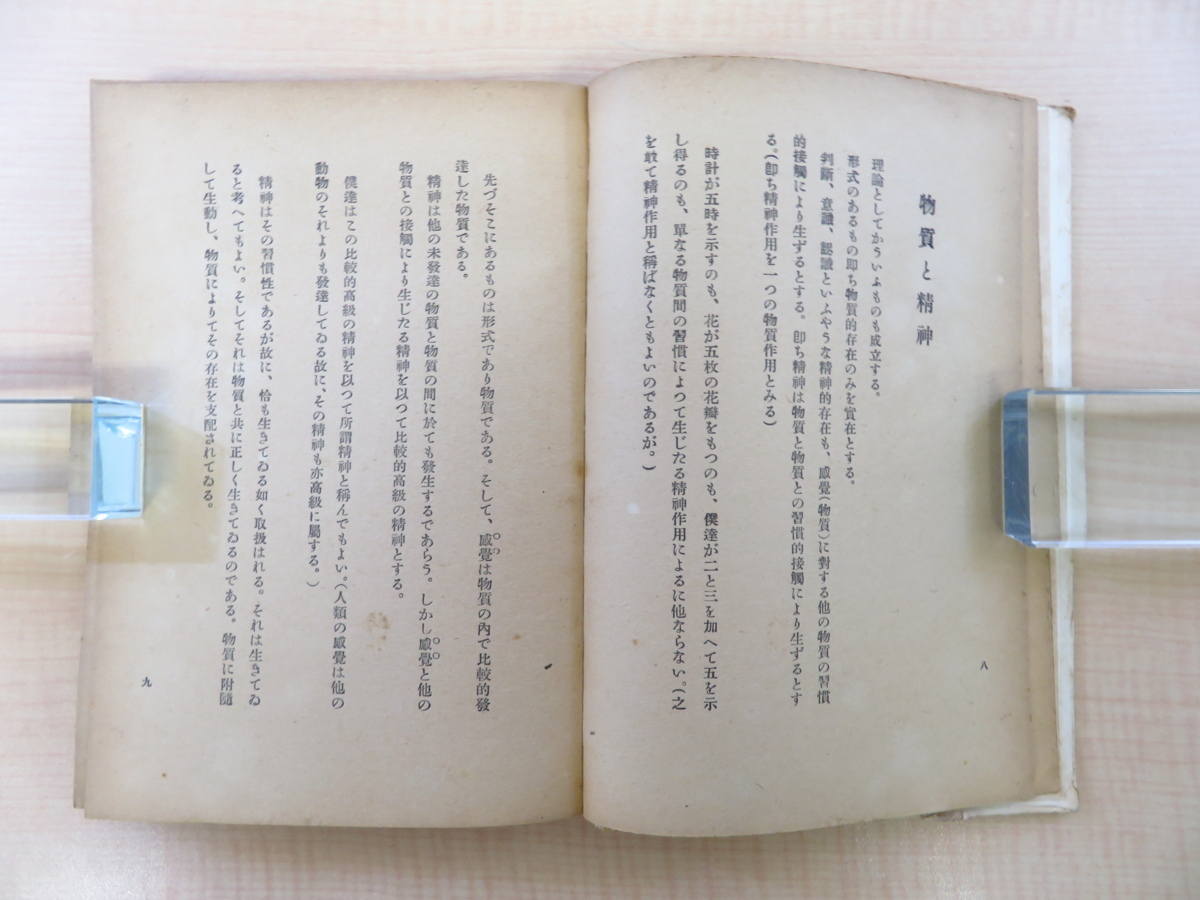 物質と精神
理論としてかういふものも成立する。
形式のあるもの卽ち物質的存在のみを實在とする。
判斷、意識、認識といふやうな精神的存在も、感覺(物質)に對する他の物質の習慣
的接觸により生ずるとする。卽ち精神は物質と物質との習慣的接觸により生ずるとす
る。(卽ち精神作用を一つの物質作用とみる)
時計が五時を示すのも、花が五枚の花瓣をもつのも、僕達が二と三を加へて五を示
し得るのも、單なる物質間の習慣によつて生じたる精神作用によるに他ならない。(之
を敢て精神作用と稱ばなくともよいのであるが。)
八
先づそこにあるものは形式であり物質である。そして、感覺は物質の內で比較的發
達した物質である。
精神は他の未發達の物質と物質の間に於ても發生するであらう。しかし感覺と他の
物質との接觸により生じたる精神を以つて比較的高級の精神とする。
僕達はこの比較的高級の精神を以つて所謂精神と稱んでもよい。(人類の感覺は他の
動物のそれよりも發達してゐる故に、その精神も亦高級に屬する。)
精神はその習慣性であるが故に、恰も生きてゐる如く取扱はれる。それは生きてゐ
ると考へてもよい。そしてそれは物質と共に正しく生きてゐるのである。物質に附隨
して生動し、物質によりてその存在を支配されてゐる。
九